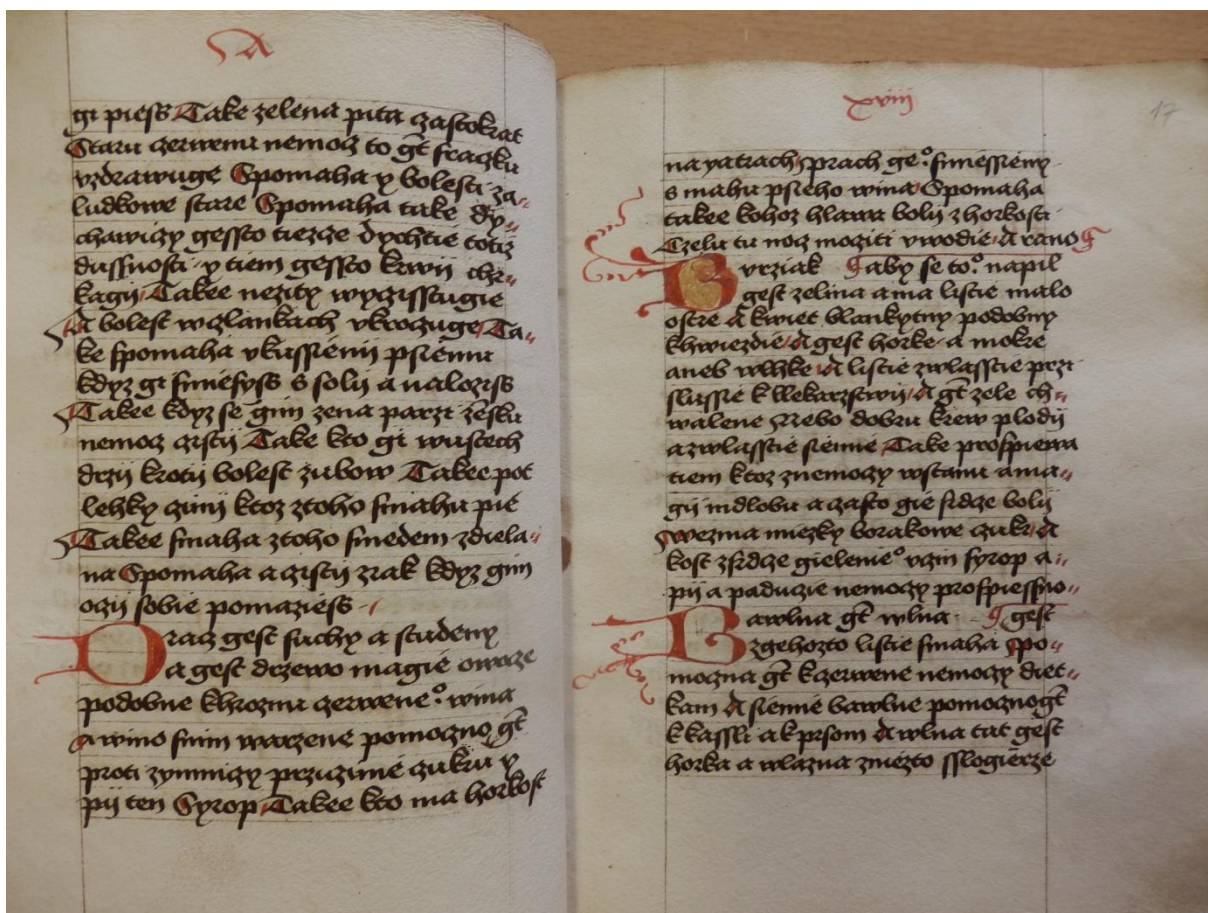 A
gi piess Take zelena pita czastokrat
Staru czerwenu nemocz to gt fraczku
vzdrawuge Spomaha y bolesti za„
ludkowe stare Spomaha take dy„
chawiczy gessto tiezcze dychtie totiz
dussnosti y tiem gessto krwij chr„
kagij Takee nezity wyczisstugie
A bolest wczlankach vkroczuge Ta„
ke spomaha vkussienij psiemu
kdyz gi smiesyss s solij a naloziss
Takee kdyz se gim zena parzi zensku
nemocz czistij Take kto gi wustech
drzij krotij bolest zubow Takee pot
lehky czinij ktoz ztoho smahu pie
Takee smaha ztoho smedem zdiela„
na Spomaha a czistij zrak kdyz gim
oczij sobie pomaziess
Dracz gest suchy a studeny
a gest drzewo magie owocze
podobne khroznu czerwene° wina
a wino snim warzene pomoczno gt
proti zymniczy przicziniie czukru y
pij ten Syrop Takee kto ma horkost
xviij
17
na yatrach prach ge° smiessieny
s mahu psieho wina Spomaha
takee kohoz hlawa bolij zhorkosti
Czelu tu nocz moziti vwodie A rano
Burziak aby se to° napil
gest zelina a ma listie malo
ostre A kwiet blankytny podobny
khwiezdie A gest horke a mokre
aneb wlhke A listie zwlasstie przi
slussie k llekarzstwij A gt zele ch„
walene Nebo dobru krew plodij
azwlasstie siemie Take prospiewa
tiem ktoz znemoczy wstanu a ma„
gij mdlobu a czasto gie srdze bolij
wezma miezky borakowe czukr A
kost zsrdze gielenie° vczin syrop a„
pij a paduczie nemoczy prospiessno„
Bawlna gt wlna gest
zgehozto listie smaha spo„
moczna gt kczerwene nemoczy diet„
kam A siemie bawlne pomocznogt
k kassli a k prsom A wlna tat gest
horka a wlazna zniezto sslogierze